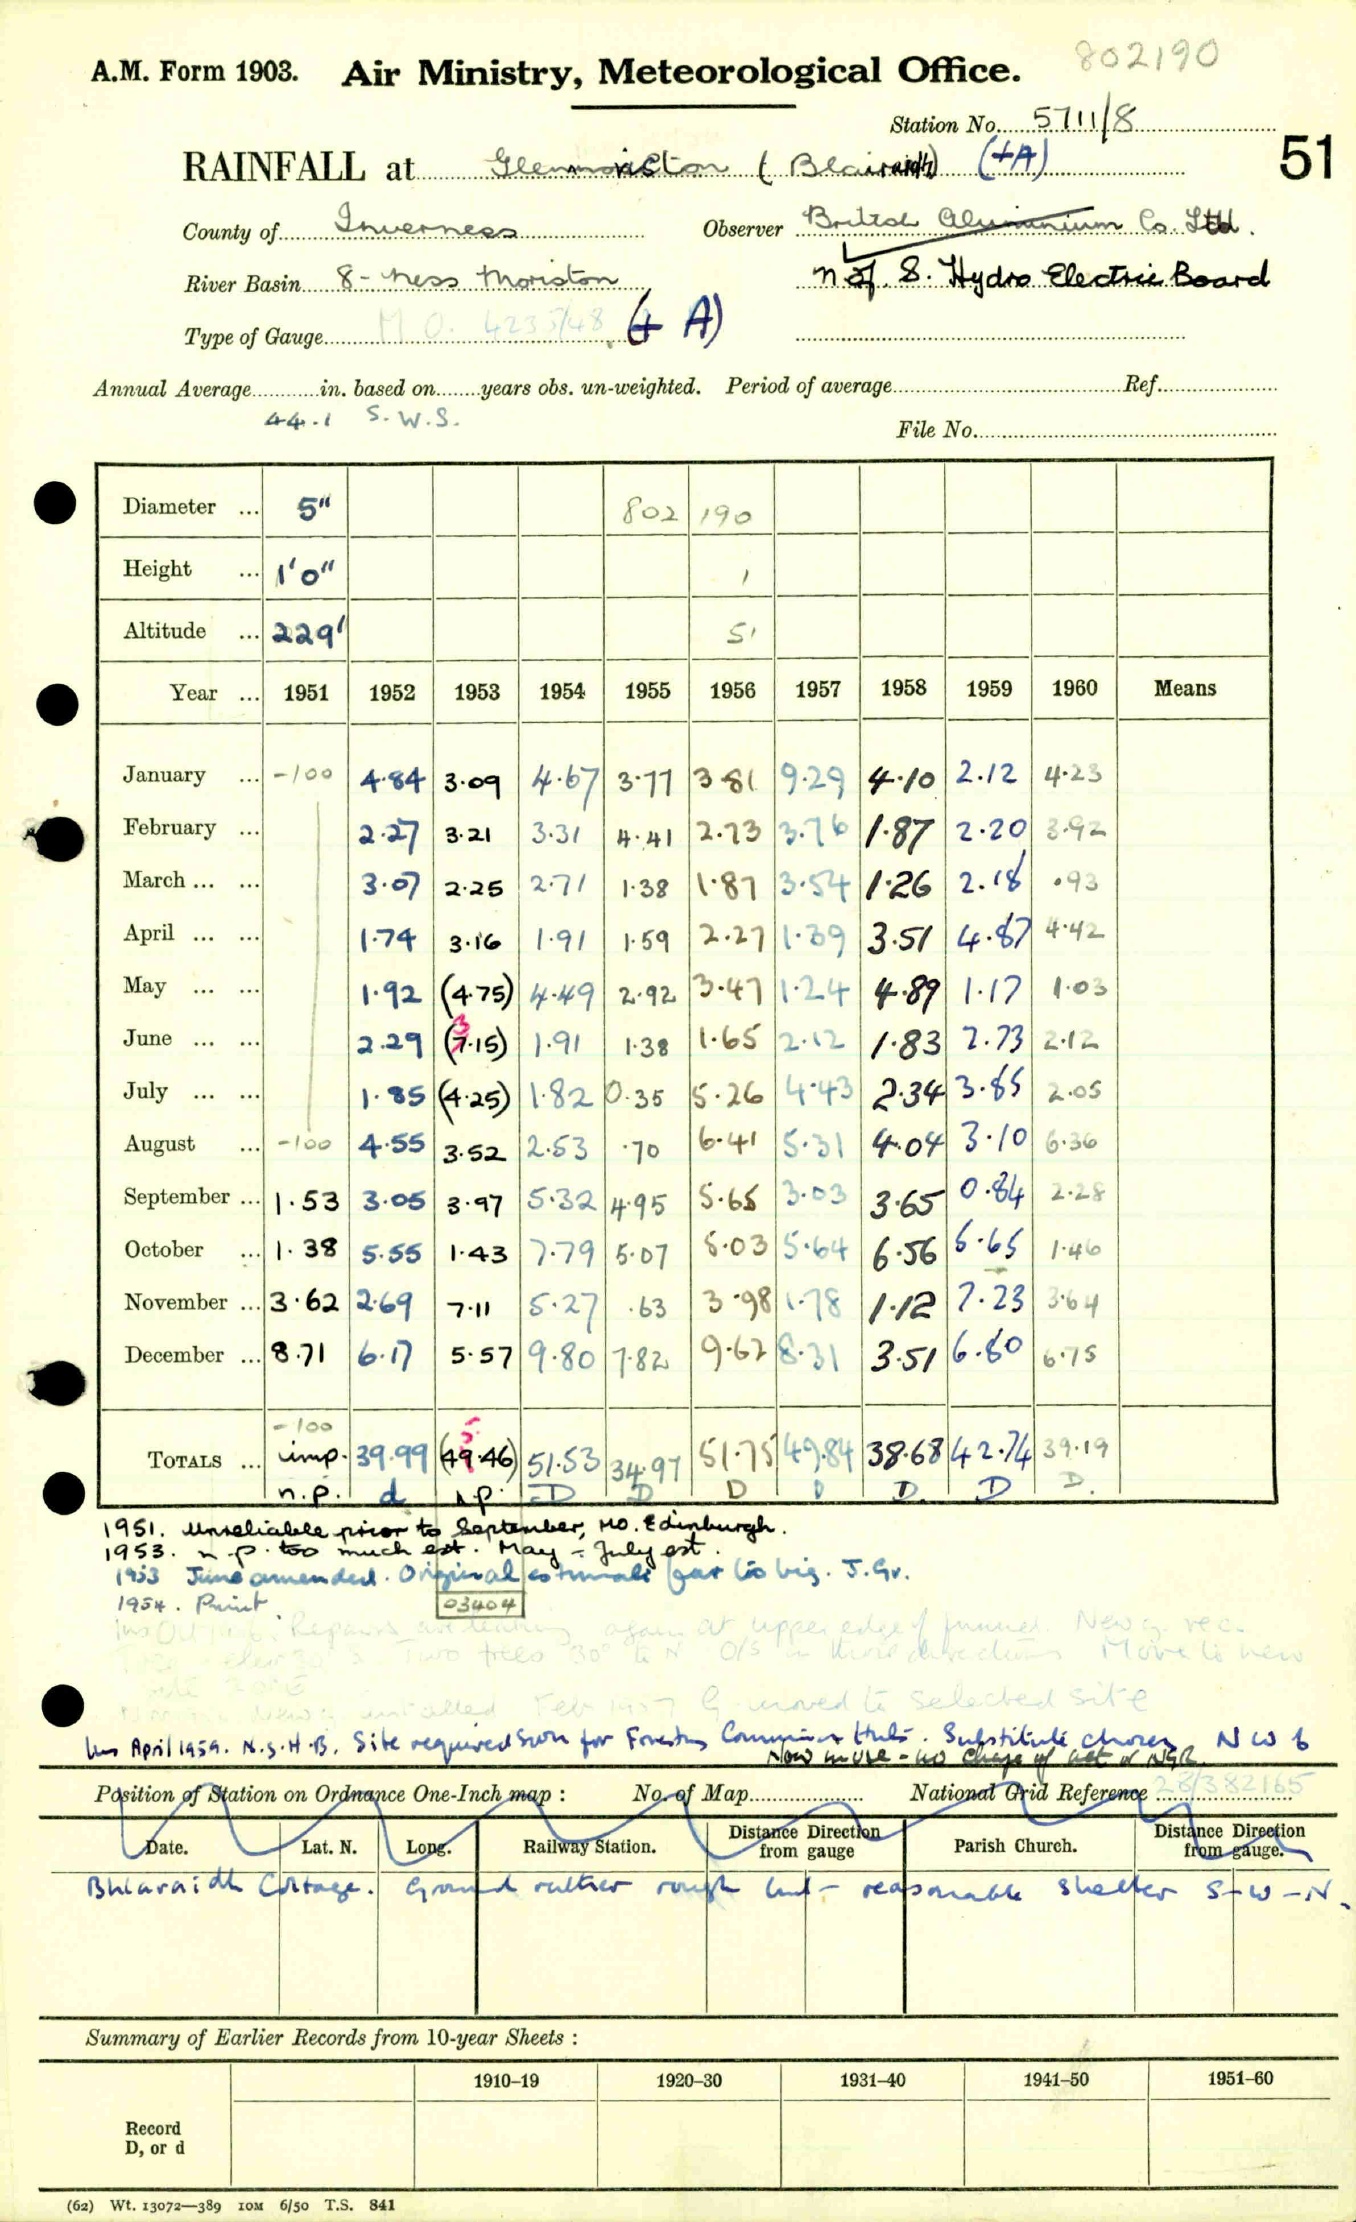 802190
A.M. Form 1903. Air Ministry, Meteorological Office.
Station No. 5711/8
51
RAINFALL at Glenmoriston (Blairaidh) (+A)
County of Inverness Observer British Aluminium Co. Ltd.
River Basin 8- Ness Moriston N. of S. Hydro Electric Board
Type of Gauge M.O. 4235/48 (+ A)
Annual Average in. based on years obs. un-weighted. Period of average Ref.
44.1 S.W.S.
File No.
Diameter ... 5" 802 190
Height ... 1'0" 1
Altitude ... 229' 51
Year ... 1951 1952 1953 1954 1955 1956 1957 1958 1959 1960 Means
January ... -100 4.84 3.09 4.67 3.77 3.81 9.29 4.10 2.12 4.23
February ... 2.27 3.21 3.31 4.41 2.73 3.76 1.87 2.20 3.92
March ... ... 3.07 2.25 2.71 1.38 1.87 3.54 1.26 2.18 .93
April ... ... 1.74 3.16 1.91 1.59 2.27 1.39 3.51 4.87 4.42
May ... ... 1.92 (4.75) 4.49 2.92 3.47 1.24 4.89 1.17 1.03
3
June ... ... 2.29 (7.15) 1.91 1.38 1.65 2.12 1.83 2.73 2.12
July ... ... 1.85 (4.25) 1.82 0.35 5.26 4.43 2.34 3.85 2.05
August ... -100 4.55 3.52 2.53 .70 6.41 5.31 4.04 3.10 6.36
September ... 1.53 3.05 3.97 5.32 4.95 5.65 3.03 3.65 0.84 2.28
October ... 1.38 5.55 1.43 7.79 5.07 5.03 5.64 6.56 6.65 1.46
November ... 3.62 2.69 7.11 5.27 .63 3.98 1.78 1.12 7.23 3.64
December ... 8.71 6.17 5.57 9.80 7.82 9.62 8.31 3.51 6.80 6.75
-100 5
TOTALS ... imp. 39.99 (49.46) 51.53 34.97 51.75 49.84 38.68 42.74 39.19
n.p. d n.p. D D D D D. D D.
1951. Unreliable prior to September, MO. Edinburgh.
1953. n.p. too much est. May - July est.
1953 June amended. Original estimate far too big. J.Gr.
1954. Print.
03404
Repairs again at upper edge of funnel. New g. rec.
Two trees 30° to N O/S in those directions Move to new
site 20° E
New g. installed Feb 1957 G moved to selected site
Ins April 1959. N.S.H.B. Site required soon for Forestry Commission Huts. Substitute chosen N W 6
Now in use - no change of alt or NGR
Position of Station on Ordnance One-Inch map : No. of Map National Grid Reference 28/382165
Date. Lat. N. Long. Railway Station. Distance from gauge Direction Parish Church. Distance from gauge. Direction
Bhlaraidh Cottage. Ground rather rough but - reasonable shelter S-W-N.
Summary of Earlier Records from 10-year Sheets :
1910–19 1920–30 1931–40 1941–50 1951–60
Record
D, or d
(62) Wt. 13072—389 10M 6/50 T.S. 841